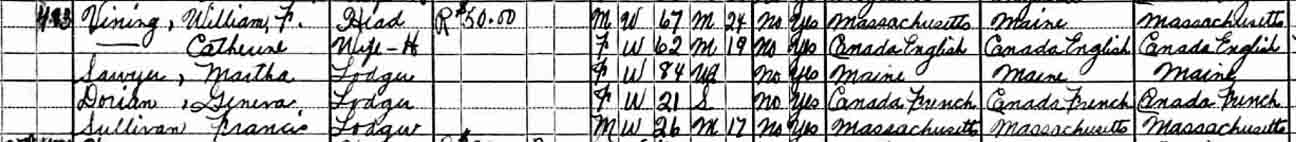 483 Vining, William, F. Head R $50.00 M W 67 M 24 No Yes Massachusetts Maine Massachusetts
—— Catherine Wife-H F W 62 M 19 No Yes Canada English Canada English Canada English
Sawyer, Martha Lodger F W 84 Wd No Yes Maine Maine Maine
Dorian, Geneva Lodger F W 21 S No Yes Canada French Canada French Canada French
Sullivan Francis Lodger M W 26 M 17 No Yes Massachusetts Massachusetts Massachusetts